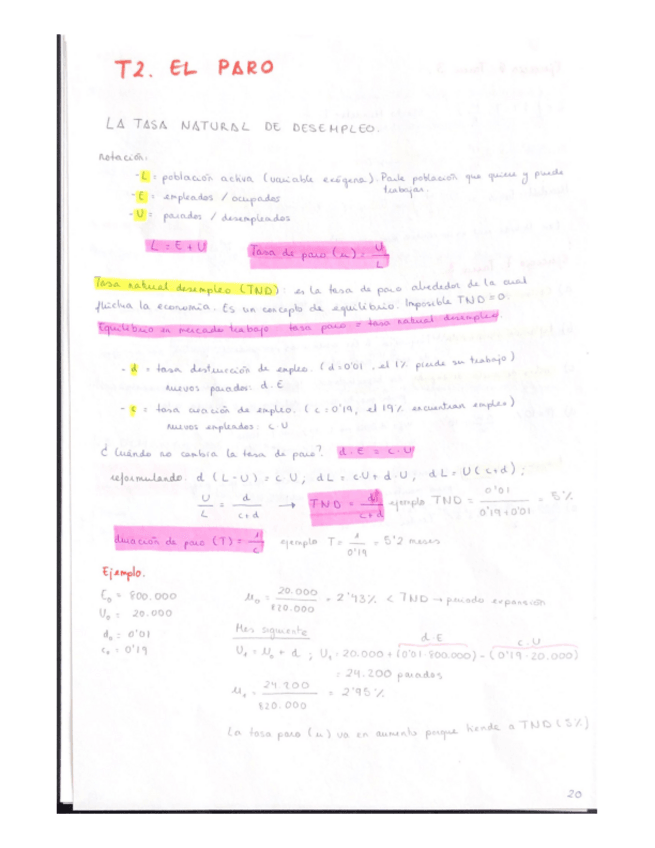 T2. EL PARO
LA TASA NATURAL DE DESEMPLEO.
notación:
- L = población activa (variable exógena). Parte población que quiere y puede
trabajar.
- E = empleados / ocupados
- U = parados / desempleados
L = E + U    Tasa de paro (u) = U/L
Tasa natural desempleo (TND): es la tasa de paro alrededor de la cual
fluctúa la economía. Es un concepto de equilibrio. Imposible TND = 0.
Equilibrio en mercado trabajo tasa paro = tasa natural desempleo
- d = tasa destrucción de empleo (d = 0'01, el 1% pierde su trabajo)
nuevos parados: d·E
- c = tasa creación de empleo. (c = 0'19, el 19% encuentran empleo)
nuevos empleados: c·U
¿Cuándo no cambia la tasa de paro? d·E = c·U
reformulando: d (L-U) = c U, dL = c·U + d·U, dL = U(c+d);
U/L = d/(c+d) → TND = d/(c+d) ejemplo TND = 0'01/(0'19+0'01) = 5%
duración de paro (T) = 1/c ejemplo T = 1/0'19 = 5'2 meses
Ejemplo.
E₀ = 800.000
U₀ = 20.000
d₀ = 0'01
c₀ = 0'19
u₀ = 20.000/820.000 = 2'43% < TND → periodo expansión
Mes siguiente
d·E    c·U
U₁ = U₀ + d; U₁ = 20.000 + (0'01·800.000) - (0'19·20.000)
= 24.200 parados
u₁ = 24.200/820.000 = 2'95%
La tasa paro (u) va en aumento porque tiende a TND (5%)
20